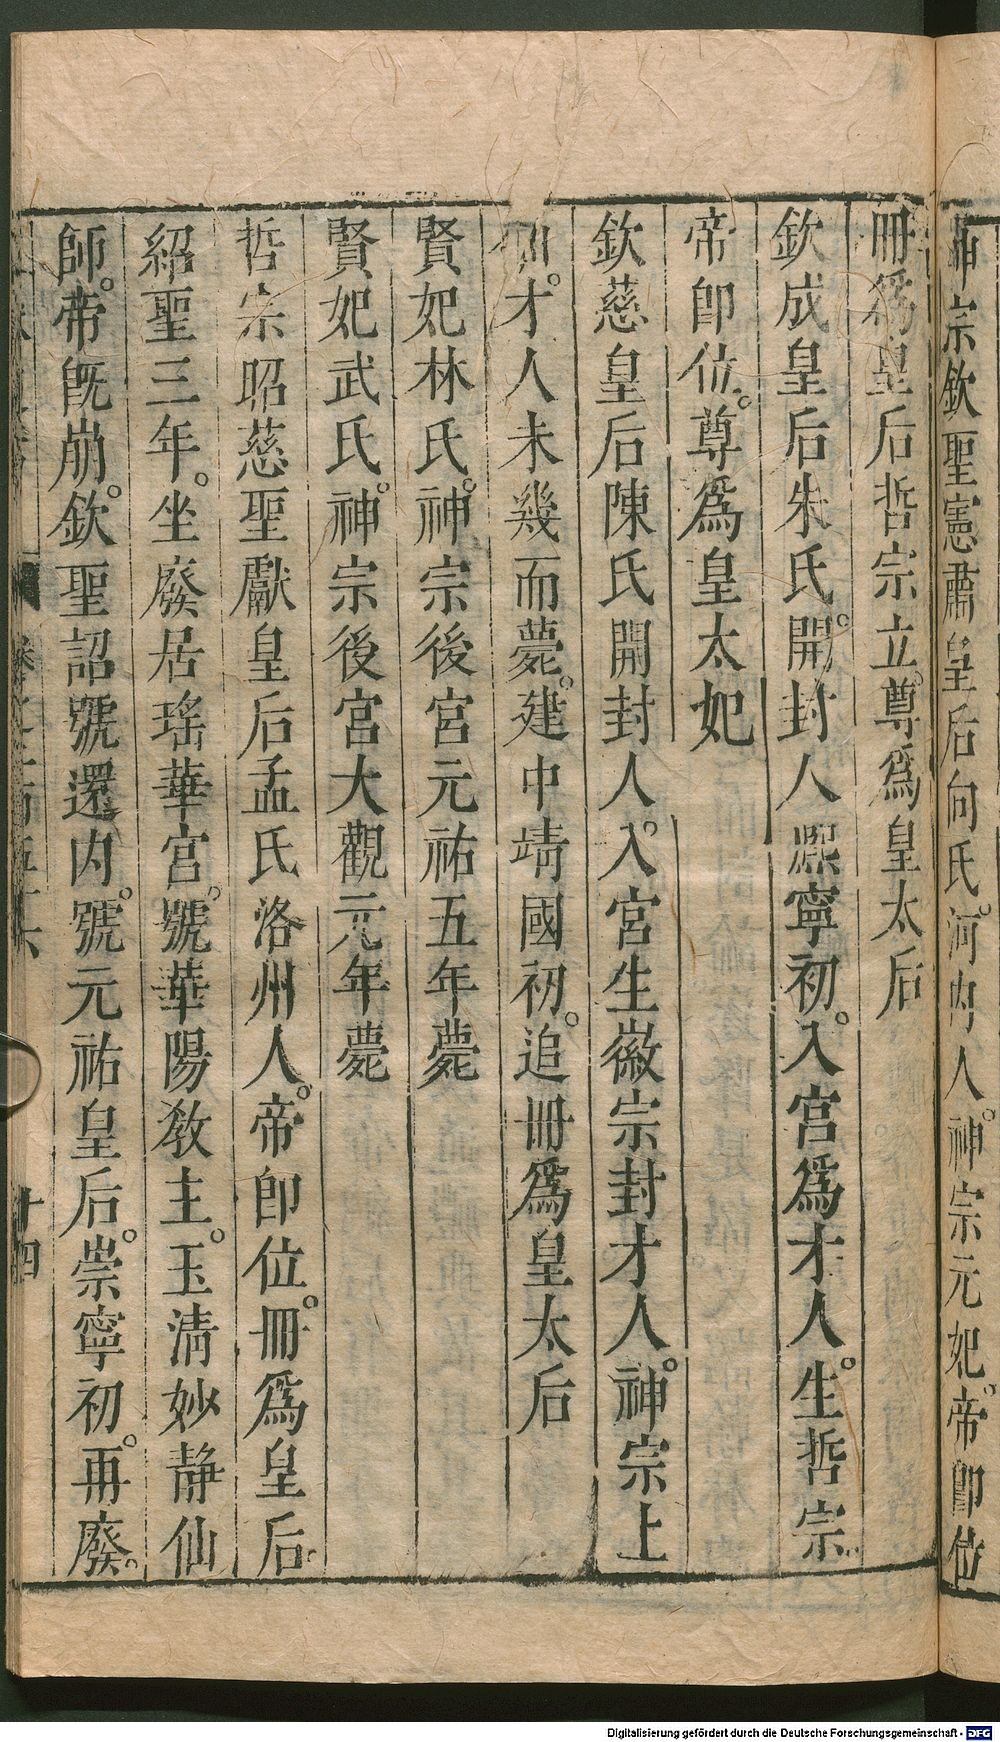 神宗欽聖憲肅皇后向氏。河內人。神宗元妃。帝卽位
冊爲皇后哲宗立。尊爲皇太后
欽成皇后朱氏。開封人熙寧初。入宮爲才人。生哲宗。
帝卽位。尊爲皇太妃
欽慈皇后陳氏開封人。入宮生徽宗封才人。神宗上
才人未幾而薨。建中靖國初。追冊爲皇太后
賢妃林氏。神宗後宮元祐五年薨
賢妃武氏。神宗後宮大觀元年薨
哲宗昭慈聖獻皇后孟氏洛州人。帝卽位。冊爲皇后。
紹聖三年。坐廢居瑤華宮。號華陽教主。玉清妙静仙
師。帝旣崩。欽聖詔號還內。號元祐皇后。崇寧初。再廢。
十四
Digitalisierung gefördert durch die Deutsche Forschungsgemeinschaft - DFG